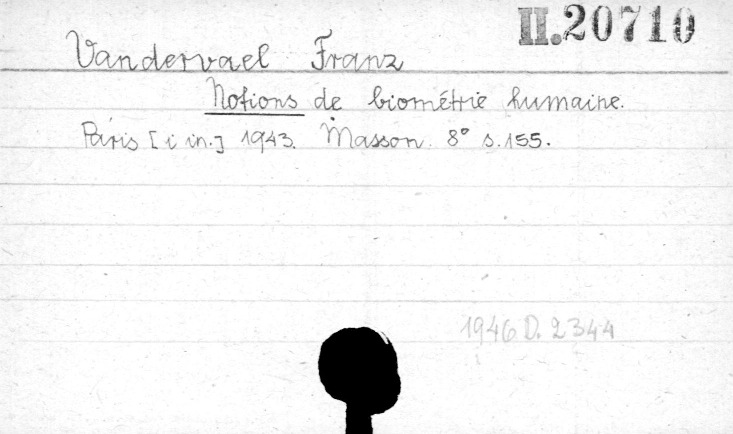 II.20710
Vandervael Franz
Notions de biométrie humaine.
Paris [i in.] 1943. Masson. 8° s.155.
1946 D. 2344